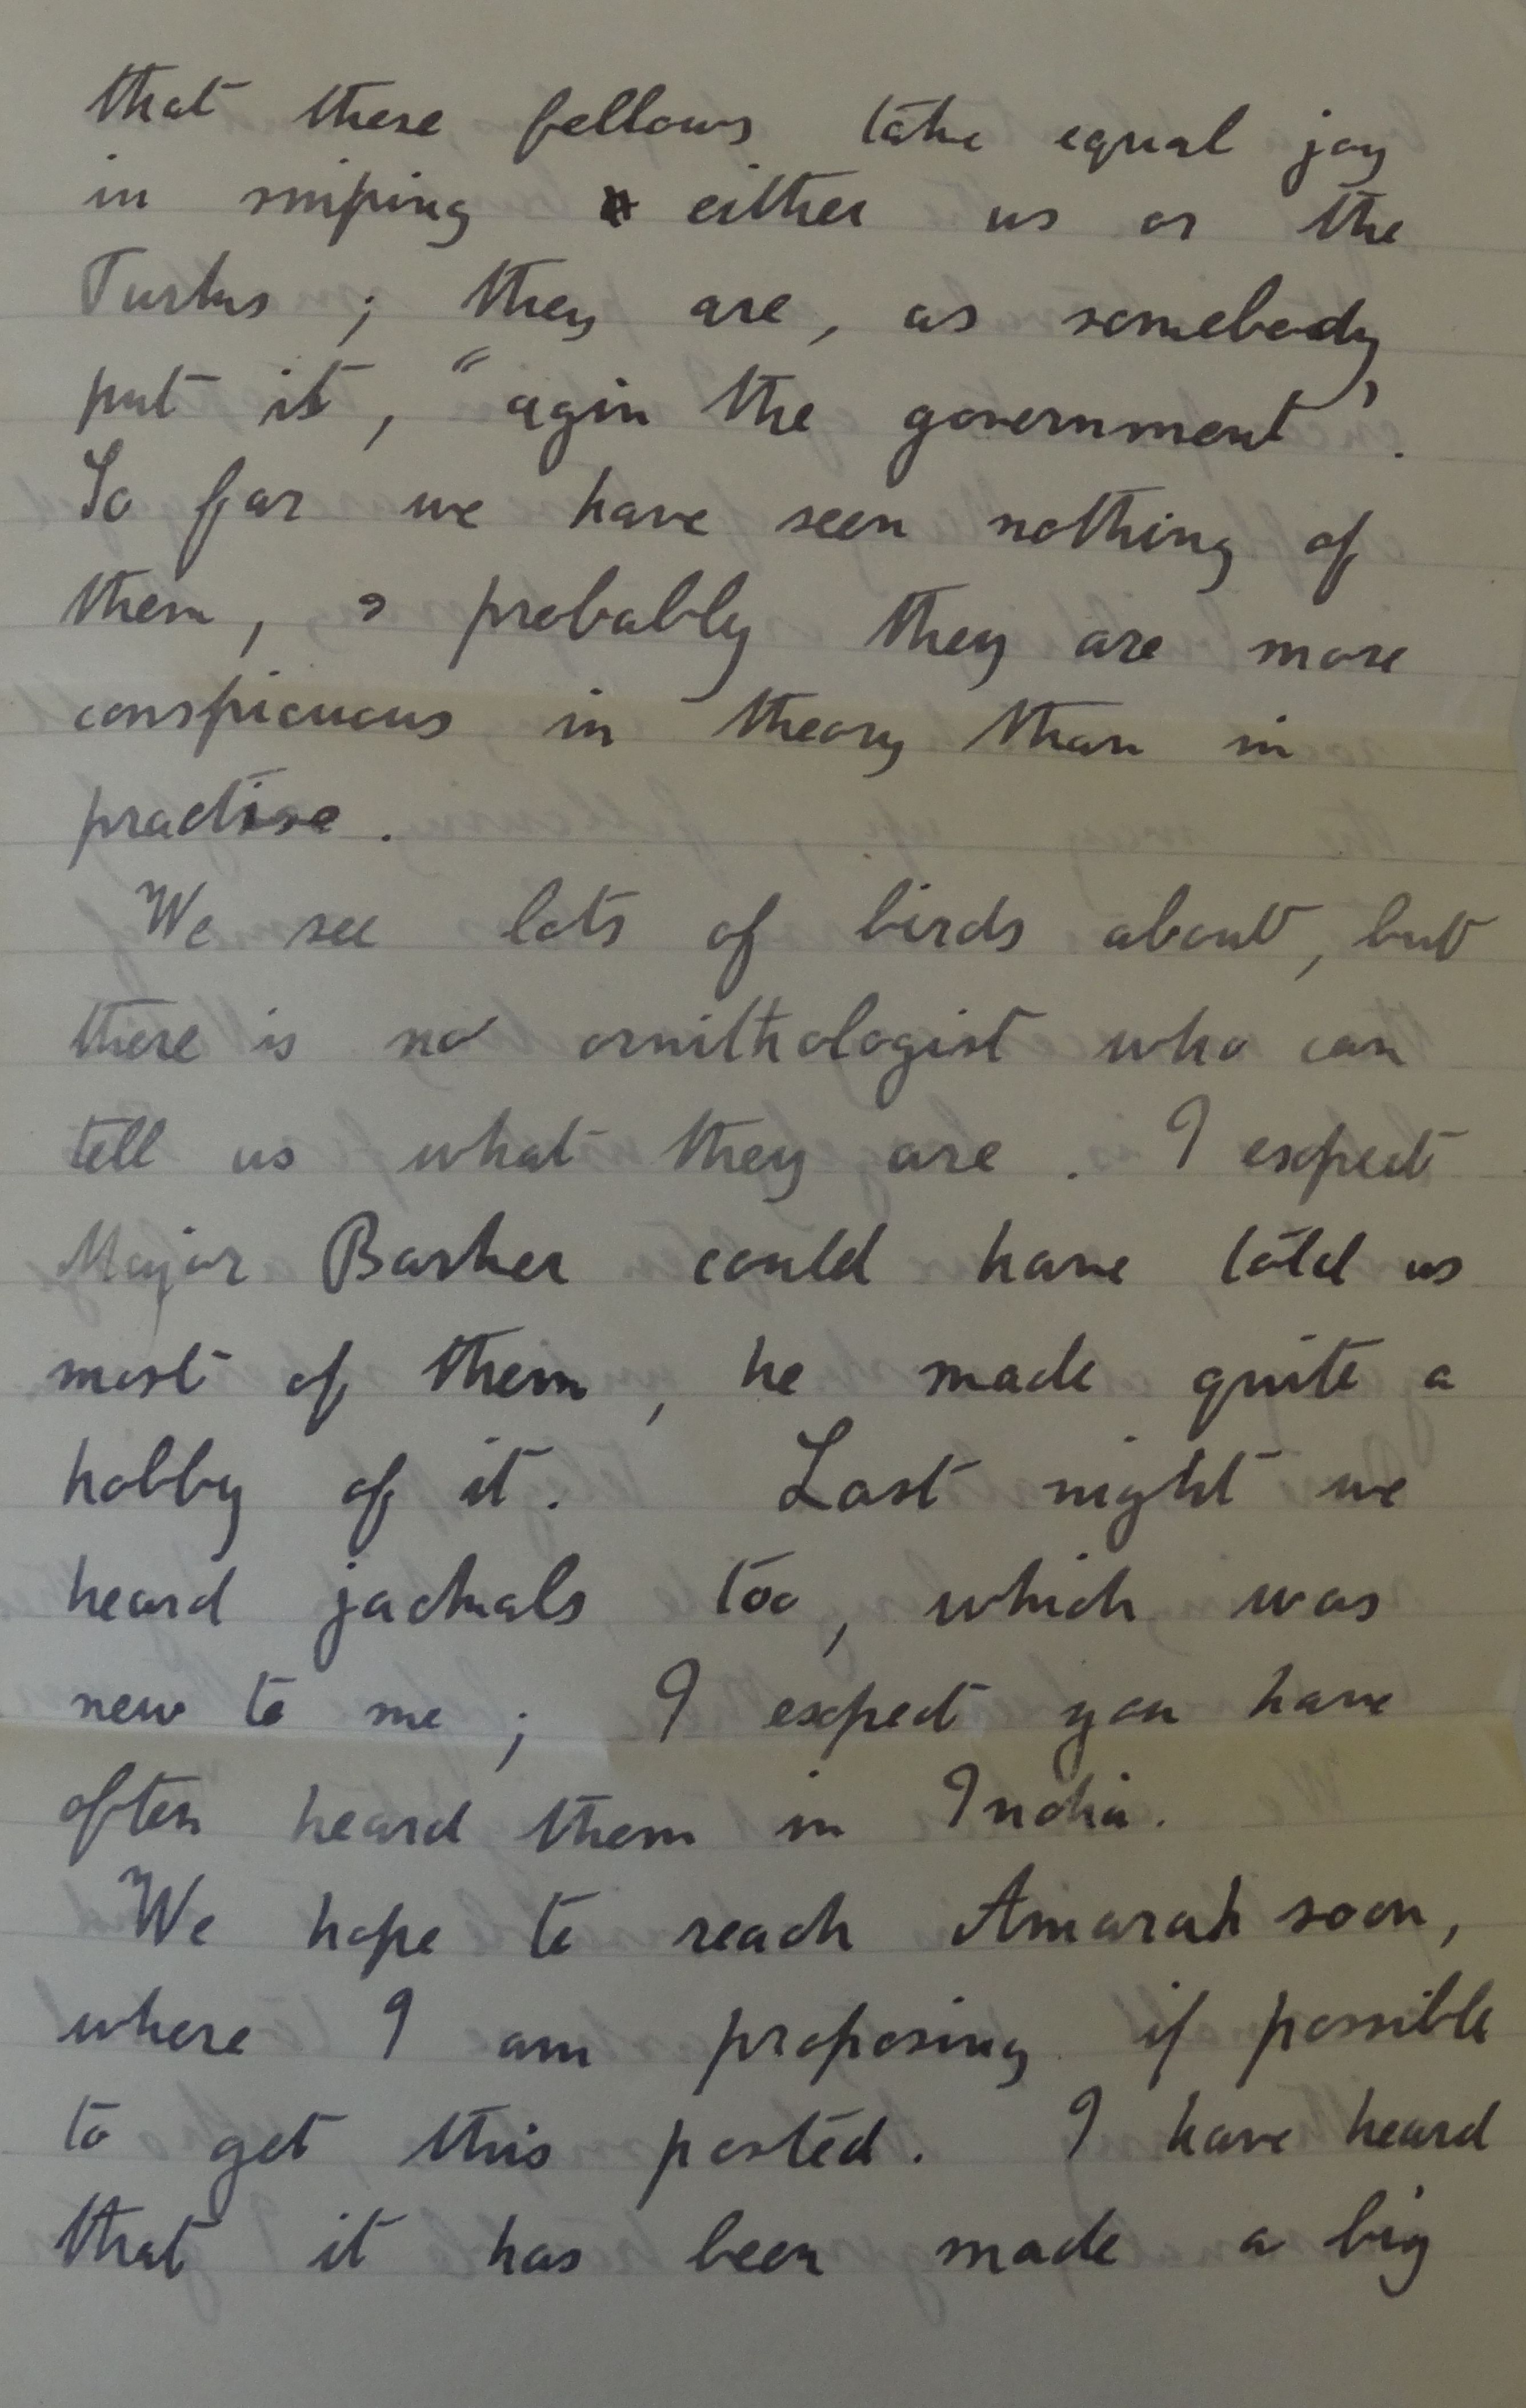 that these fellows take equal joy
in sniping either us or the
Turks ; they are, as somebody
put it, "agin the government".
So far we have seen nothing of
them, & probably they are more
conspicuous in theory than in
practise.
We see lots of birds about, but
there is no ornithologist who can
tell us what they are. I expect
Major Barker could have told us
most of them, he made quite a
hobby of it. Last night we
heard jackals too, which was
new to me ; I expect you have
often heard them in India.
We hope to reach Amarah soon,
where I am proposing if possible
to get this posted. I have heard
that it has been made a big